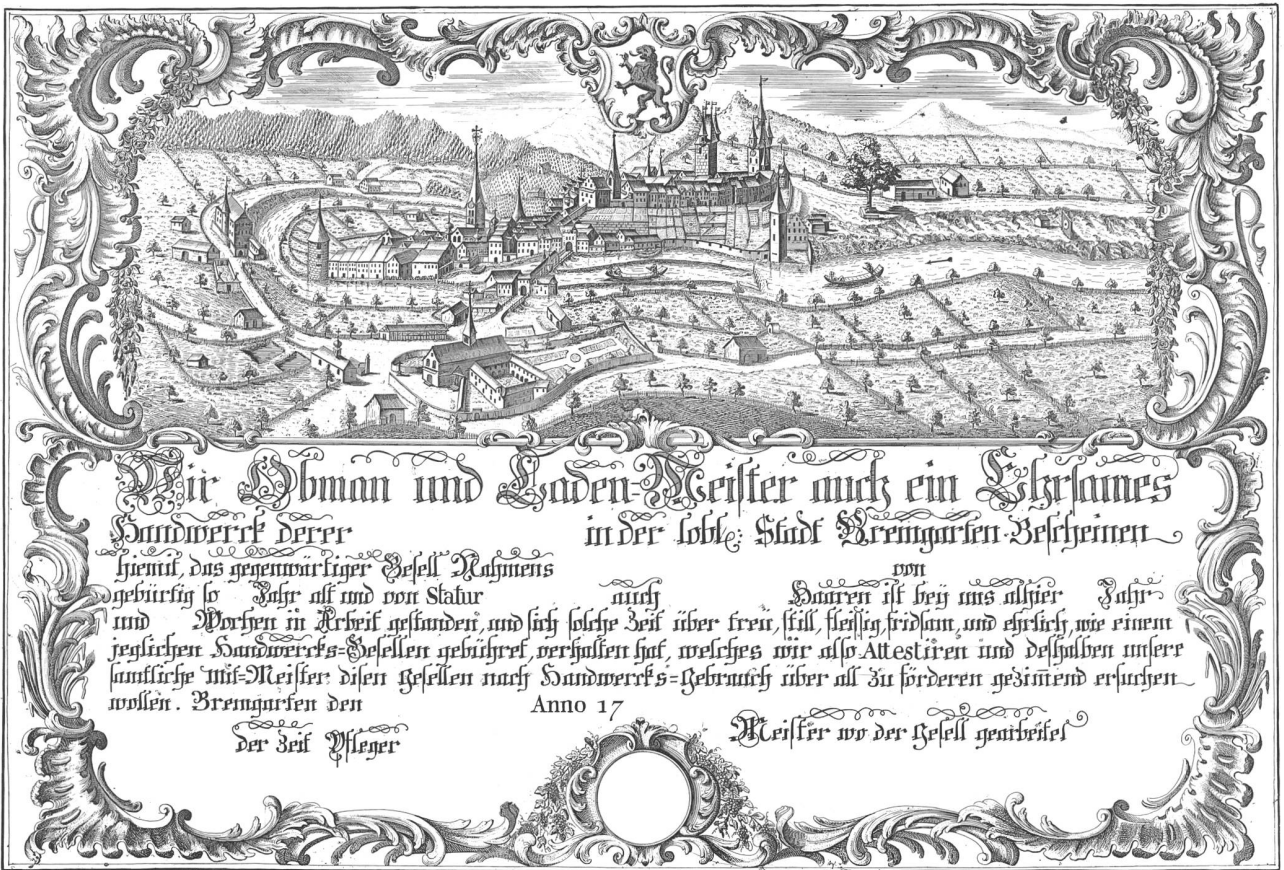 Wir Obman und Laden-Meister auch ein Ehrsames
Handwerck derer in der lobl: Stadt Bremgarten Bescheinen
hiemit, das gegenwärtiger Gesell Nahmens von
gebürtig so Jahr alt und von Statur auch Haaren ist bey uns alhier Jahr
und Wochen in Arbeit gestanden, und sich solche Zeit über treu, still, fleissig, fridsam, und ehrlich, wie einem
jeglichen Handwercks=Gesellen gebühret, verhalten hat, welches wir also Attestiren und deshalben unsere
samtliche Mit=Meister disen Gesellen nach Handwercks=Gebrauch über all zu förderen gezim̄end ersuchen
wollen. Bremgarten den Anno 17
der Zeit Pfleger Meister wo der Gesell gearbeitet